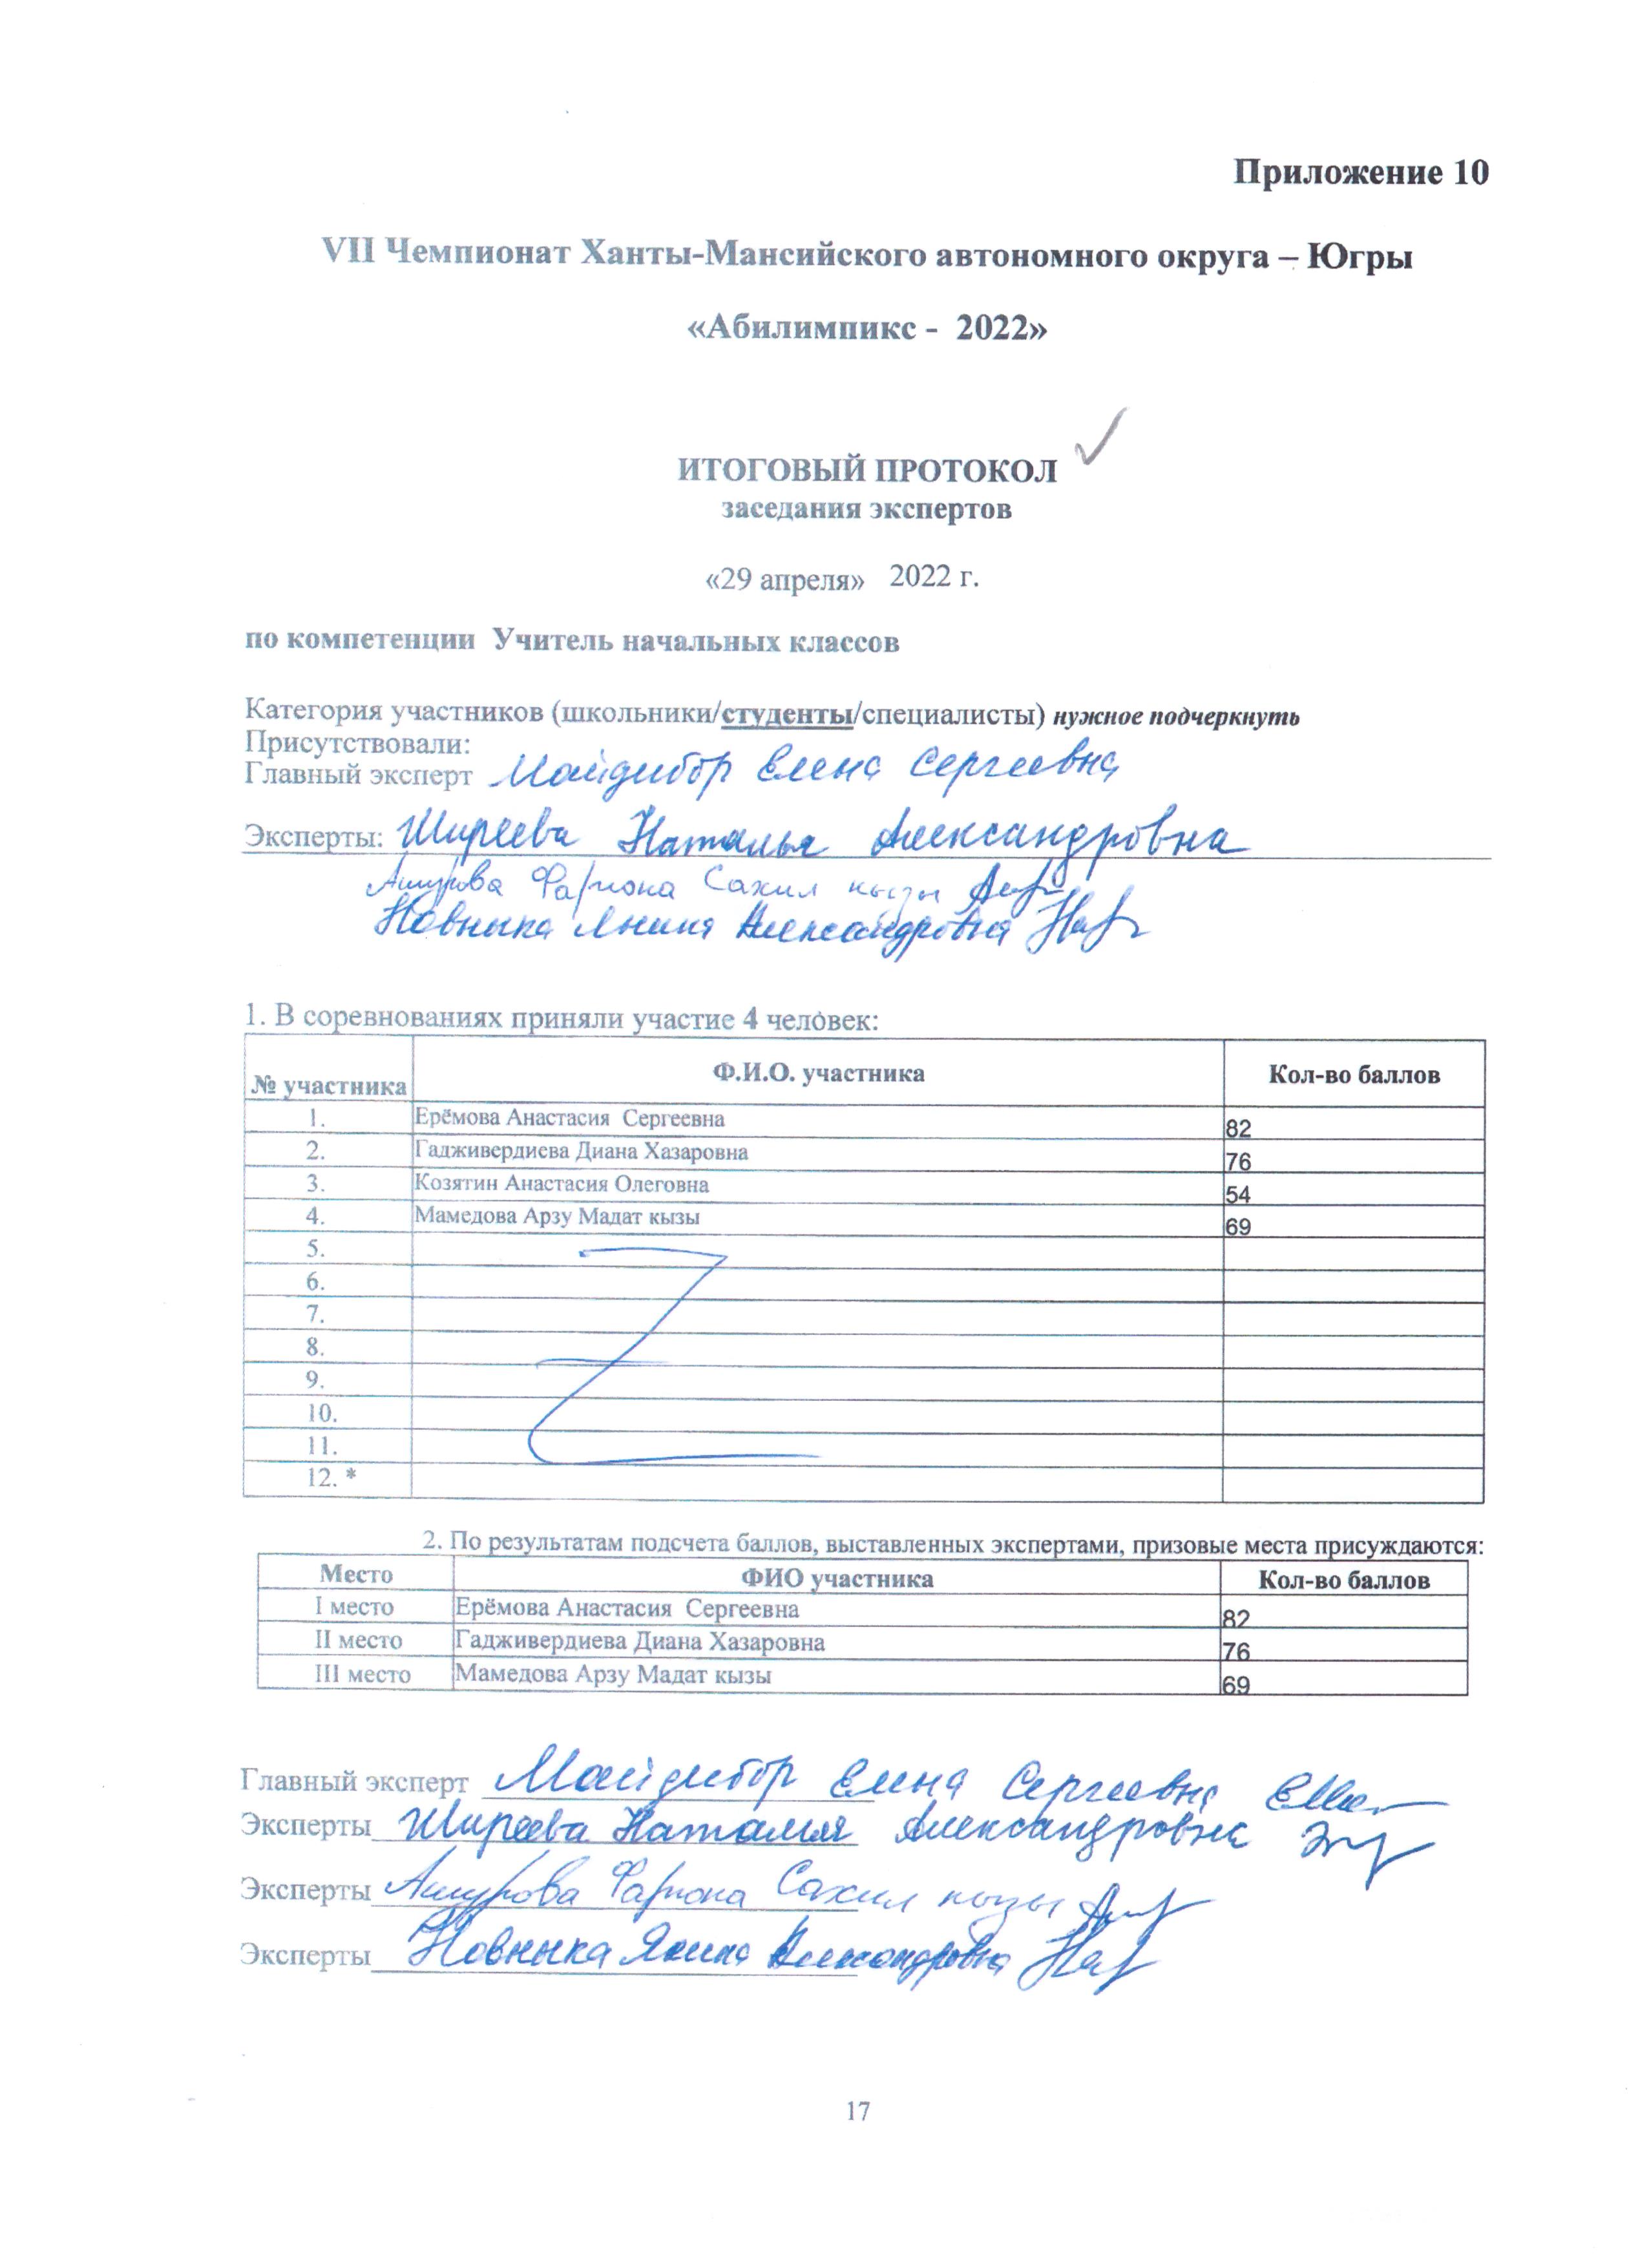 Приложение 10
VII Чемпионат Ханты-Мансийского автономного округа – Югры
«Абилимпикс - 2022»
ИТОГОВЫЙ ПРОТОКОЛ
заседания экспертов
«29 апреля» 2022 г.
по компетенции Учитель начальных классов
Категория участников (школьники/студенты/специалисты) нужное подчеркнуть
Присутствовали:
Главный эксперт Майдибор Елена Сергеевна
Эксперты: Ширеева Наталья Александровна
Ашурова Сахил кызы
Александровна
1. В соревнованиях приняли участие 4 человек:
№ участника Ф.И.О. участника Кол-во баллов
1. Ерёмова Анастасия Сергеевна 82
2. Гадживердиева Диана Хазаровна 76
3. Козятин Анастасия Олеговна 54
4. Мамедова Арзу Мадат кызы 69
5.
6.
7.
8.
9.
10.
11.
12. *
2. По результатам подсчета баллов, выставленных экспертами, призовые места присуждаются:
Место ФИО участника Кол-во баллов
I место Ерёмова Анастасия Сергеевна 82
II место Гадживердиева Диана Хазаровна 76
III место Мамедова Арзу Мадат кызы 69
Главный эксперт Майдибор Елена Сергеевна
Эксперты Ширеева Наталья Александровна
Эксперты Ашурова Сахил кызы
Эксперты Александровна
17